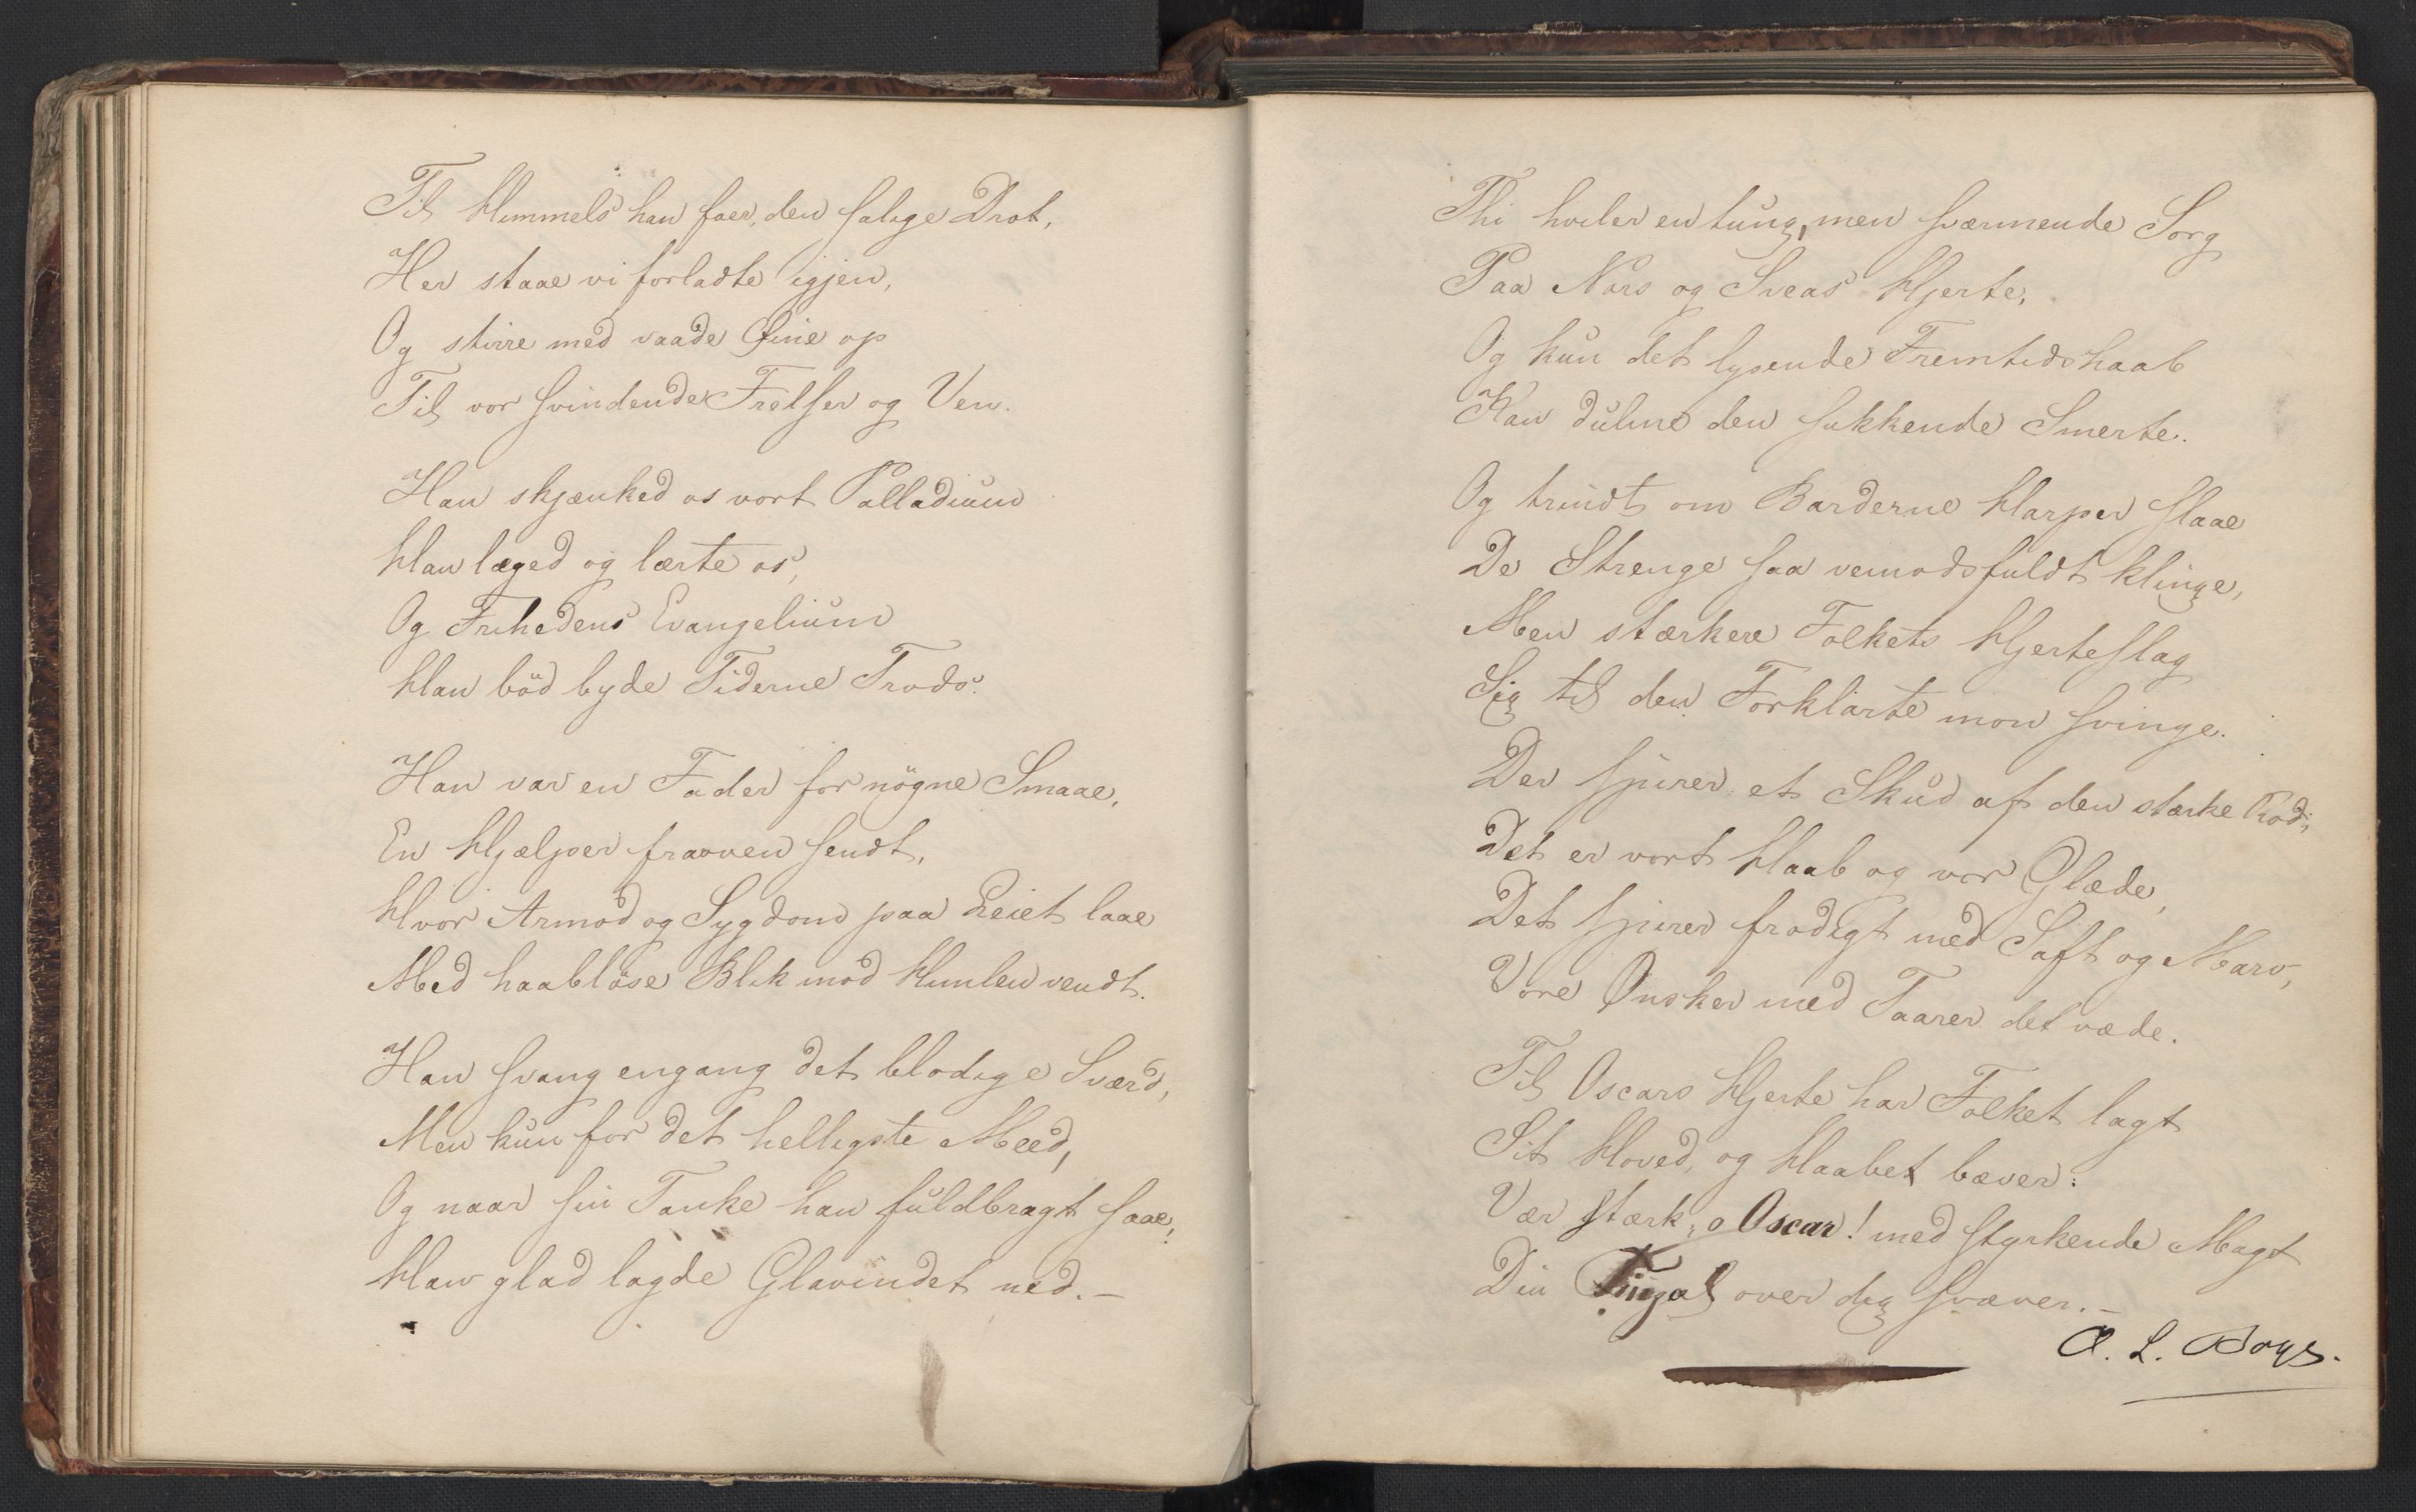 Til Himmels han foer, den salige Drot,
Her staae vi forladte igjen,
Og stirre med vaade Øine op
Til vor svindende Frelser og Ven.
Han skjænked os vort Palladium
Han læged og lærte os,
Og Frihedens Evangelium
Han bød byde Tiderne Trods.
Han var en Fader for nøgne Smaae,
En Hjælper fraoven sendt,
Hvor Armod og Sygdom paa Leiet laae
Med haabløse Blik mod Himlen vendt.
Han svang engang det blodige Sværd,
Men kun for det helligste Meed,
Og naar sin Tanke han fuldbragt saae,
Han glad lagde Glavindet ned. –
Thi hviler en tung, men sværmende Sorg
Paa Nors og Sveas Hjerte,
Og kun det lysende Fremtidshaab
Kan dulme den sukkende Smerte.
Og trindt om Barderne Harper slaae
De Strenge saa vemodsfuldt klinge,
Men stærkere Folkets Hjerteslag
Sig til den Forklarte mon svinge.
Der spirer et Skud af den stærke Rod,
Det er vort Haab og vor Glæde,
Det spirer frodigt med Saft og Marv,
Vore Ønsker med Taarer det væde.
Til Oscars Hjerte har Folket lagt
Sit Hoved, og Haabet bæver:
Vær stærk, o Oscar! med styrkende Magt
Din Fingal over dig svæver. –
O. L. Boys.